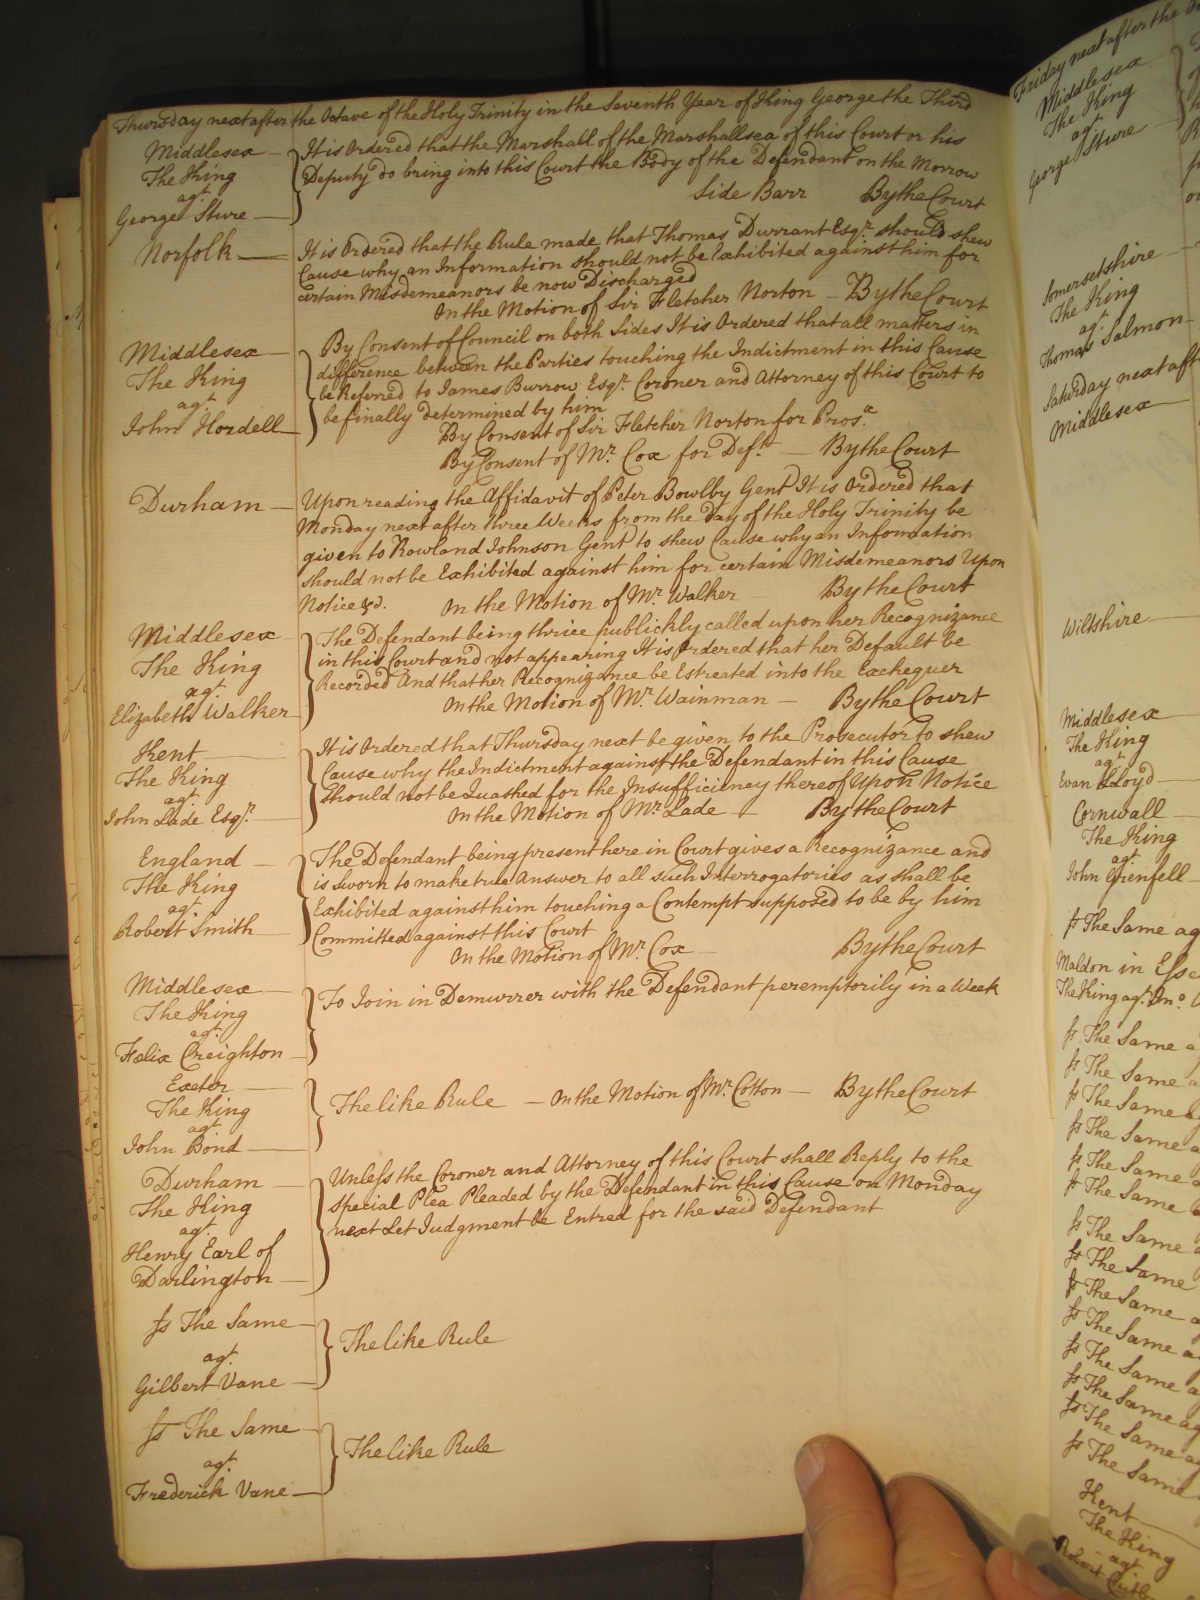 Thursday next after the Octave of the Holy Trinity in the Seventh Year of King George the Third
Middlesex
The King
agt.
George Sture
It is Ordered that the Marshall of the Marshallsea of this Court or his
Deputy do bring into this Court the Body of the Defendant on the Morrow
Side Barr By the Court
Norfolk
It is Ordered that the Rule made that Thomas Durrant Esqr. should shew
Cause why an Information should not be Exhibited against him for
certain Misdemeanors be now Discharged
On the Motion of Sir Fletcher Norton — By the Court
Middlesex
The King
agt.
John Hordell
By Consent of Council on both Sides It is Ordered that all matters in
difference between the Parties touching the Indictment in this Cause
be Referred to James Burrow Esqr. Coroner and Attorney of this Court to
be finally determined by him
By Consent of Sir Fletcher Norton for Prosx.
By Consent of Mr. Cox for Deft. — By the Court
Durham
Upon reading the Affidavit of Peter Bowlby Gent It is Ordered that
Monday next after three Weeks from the Day of the Holy Trinity be
given to Rowland Johnson Gent to shew Cause why an Information
should not be Exhibited against him for certain Misdemeanors Upon
Notice &c. On the Motion of Mr. Walker By the Court
Middlesex
The King
agt.
Elizabeth Walker
The Defendant being thrice publickly called upon her Recognizance
in this Court and not appearing It is Ordered that her Default be
Recorded And that her Recognizance be Estreated into the Exchequer
On the Motion of Mr. Wainman — By the Court
Kent
The King
agt.
John Lade Esqr.
It is Ordered that Thursday next be given to the Prosecutor to shew
Cause why the Indictment against the Defendant in this Cause
should not be Quashed for the Insufficiency thereof Upon Notice
On the Motion of Mr. Lade — By the Court
England
The King
agt.
Robert Smith
The Defendant being present here in Court gives a Recognizance and
is Sworn to make true Answer to all such Interrogatories as shall be
Exhibited against him touching a Contempt supposed to be by him
Committed against this Court
On the Motion of Mr. Cox By the Court
Middlesex
The King
agt.
Felix Creighton
To Join in Demurrer with the Defendant peremptorily in a Week
Exeter
The King
agt.
John Bond
The like Rule — On the Motion of Mr. Cotton — By the Court
Durham
The King
agt.
Henry Earl of
Darlington
Unless the Coroner and Attorney of this Court shall Reply to the
Special Plea Pleaded by the Defendant in this Cause on Monday
next Let Judgment be Entred for the said Defendant
Js The Same
agt.
Gilbert Vane
The like Rule
Js The Same
agt.
Frederick Vane
The like Rule
Friday next after the
Middlesex
The King
agt.
George Sture
Somersetshire
The King
agt.
Thomas Salmon
Saturday next aft
Middlesex
Wiltshire
Middlesex
The King
agt.
Evan Lloyd
Cornwall
The King
agt.
John Grenfell
Js The Same ag
Maldon in Esse
The King agt. Jno.
Js The Same a
Js The Same a
Js The Same a
Js The Same a
Js The Same a
Js The Same
Js The Same a
Js The Same
Js The Same a
Js The Same a
Js The Same a
Js The Same ag
Js The Same a
Js The Same
Kent
The King
agt.
Robert